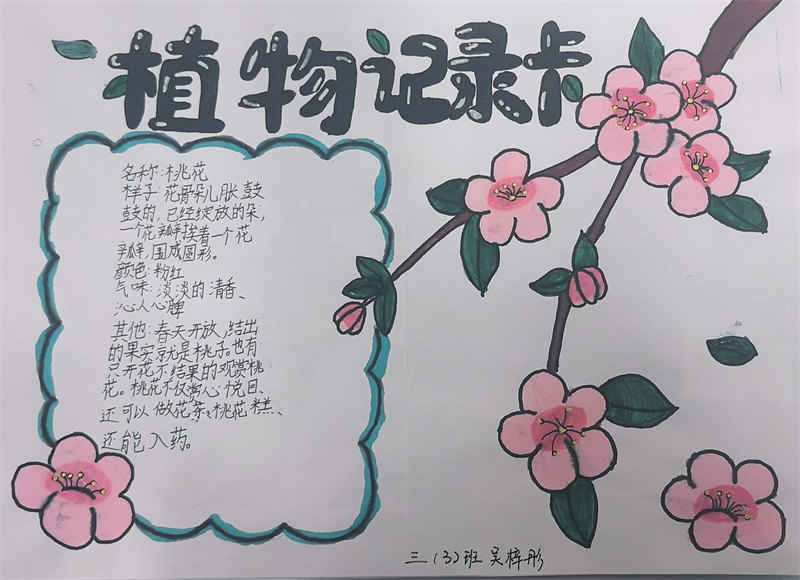 植物记录卡
名称:桃花
样子:花骨朵儿胀鼓
鼓的,已经绽放的朵,
一个花瓣挨着一个花
瓣,围成圆形。
颜色:粉红
气味:淡淡的清香、
沁人心脾
其他:春天开放,结出
的果实就是桃子。也有
只开花不结果的观赏桃
花。桃花不仅赏心悦目、
还可以做花茶、桃花糕、
还能入药。
三(3)班 吴梓彤